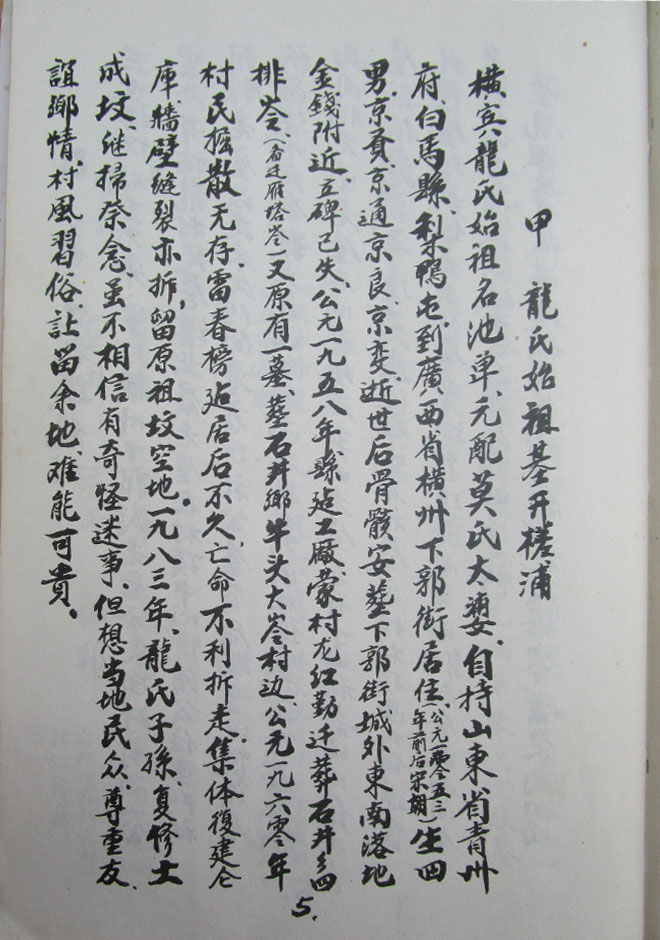 甲 龍氏始祖基开槎浦
横宾龍氏始祖名池单、元配莫氏太婆、自持山東省青州
府、白馬縣、梨鴨屯到廣西省横州下郭街居住、(公元一零五三年前后宋朝)生四
男、京貢、京通、京良、京变、逝世后骨骸安塟下郭街城外東南落地
金錢附近、立碑已失、公元一九五八年縣建工廠、蒙村龙红勤迁葬石井乡四
排岺、(看迁雁塔岺)又原有一墓、塟石井鄉牛头大岺村边、公元一九六零年
村民掘散无存、雷春榜建居后不久、亡命不利拆走、集体復建仓
庫、牆壁縫裂亦拆、留原祖坟空地。一九八三年、龍氏子孫、复修土
成坟、继掃祭念、虽不相信有奇怪迷事、但想当地民众、尊重友
誼、鄉情、村風習俗、让留余地、难能可貴。
5.